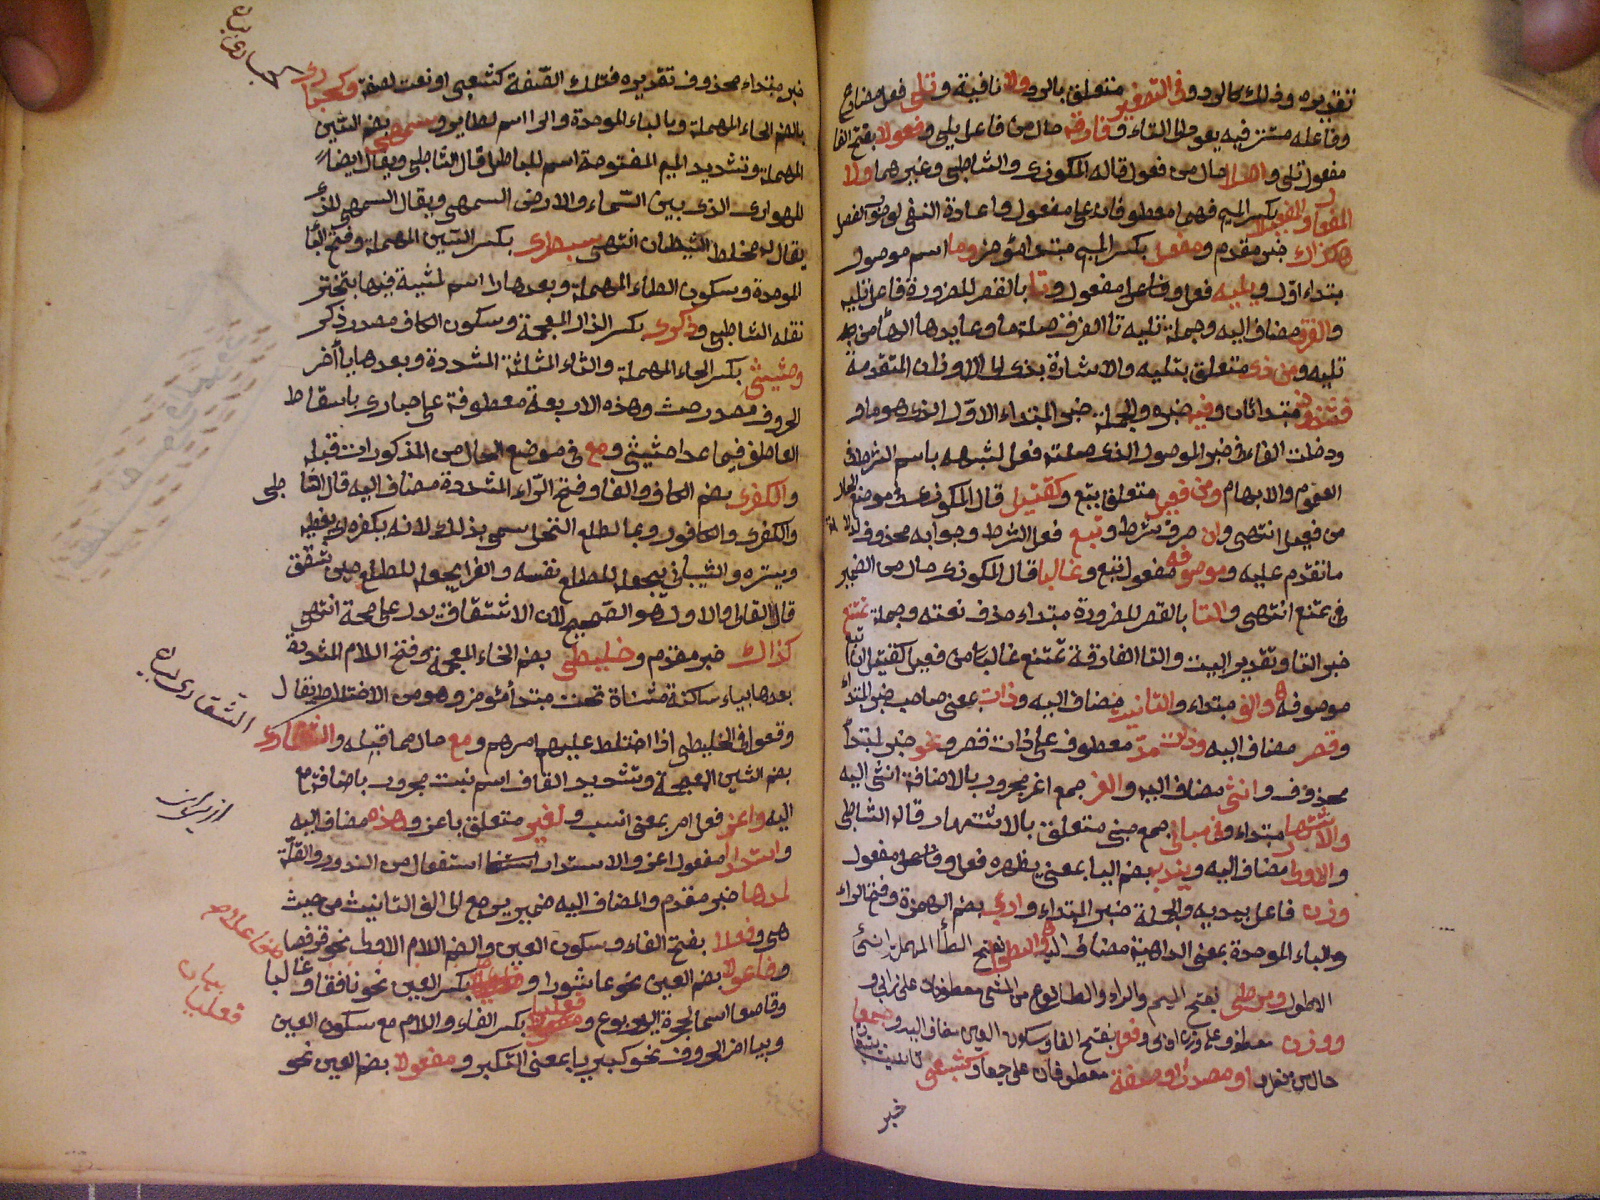 تقديره وذلك كالردو وفي التصغير متعلق بالرد ولا نافية وتلي فعل مضارع
وفاعله مستتر فيه يعود الى التاء وفارقة حال من فاعل يلي وفعولا بفتح الفا
مفعول تلي واصلا حال من فعول قاله المكودي والشاطبي وغيرهما ولا
المفعال والمفعيلا بكسر الميم فيهما معطوفان على مفعول واعادة النفي
كذاك خبر مقدم ومفعل بكسر الميم مبتدا مؤخر وما اسم موصول
مبتداء اول ويليه فعل وفاعل ومفعول وتا بالقصر للضرورة فاعل تليه
والفرق مضاف اليه وجملة تليه تا الفرق صلة ما وعايدها الهاء من
تليه ومن ذي متعلق بتليه والاشارة بذي الى الاوزان المتقدمة
فشذوذ مبتدا ثان وفيه خبره والجملة خبر المبتداء الاول الذي هو ما
ودخلت الفاء في خبر الموصول الذي صلته فعل لشبهه باسم الشرط في
العموم والابهام ومن فعيل متعلق بتبع وكقتيل قال المكودي في موضع الحال
من فعيل انتهى وان حرف شرط وتبع فعل الشرط وجوابه محذوف
ما تقدم عليه وموصوفه مفعول تبع وغالبا قال المكودي حال من الضمير
في تمتنع انتهى والتا بالقصر للضرورة مبتداء حذف نعته وجملة تمتنع
خبر التا وتقدير البيت والتا الفارقة تمتنع غالبا من فعيل كقتيل ان تبع
موصوفه والف مبتداء والتانيث مضاف اليه وذات بمعنى صاحب خبر المبتداء
وقصر مضاف اليه وذات مد معطوف على ذات قصر ونحو خبر لمبتدأ
محذوف وانثى مضاف اليه والغر جمع اغر مجرور بالاضافة انثى اليه
والاشتهار مبتداء وفي مباني جمع مبنى متعلق بالاشتهار قاله الشاطبي
والاولى مضاف اليه ويبديه بضم اليا بمعنى يظهره فعل وفاعل ومفعول
وزن فاعل يبديه والجملة خبر المبتداء واربى بضم الهمزة وفتح الراء
والباء الموحدة بمعنى الداهية مضاف اليه والطولى بفتح الطا المهملة انثى
الاطول ومرطى بفتح الميم والراء والطا نوع من المشي معطوفان على اربى و
ووزن معطوف على وزن اولى وفعلى بفتح الفاء وسكون العين مضاف اليه وجمعا
حال من فعلى او مصدرا او صفة معطوفان على جمعا وكشبعى
خبر
خبر مبتداء محذوف تقديره فتلك الصفة كشبعى او نعت لصفة وكحبارى
بالضم الحاء المهملة وبالباء الموحدة والرا اسم لطاير وسمهى بضم السين
المهملة وتشديد الميم المفتوحة اسم للباطل قال الشاطبي ويقال ايضا
للهواء الذي بين السماء والارض السمهى ويقال السمهى الذي
يقال له مخاط الشيطان انتهى سبطرى بكسر السين المهملة وفتح الباء
الموحدة وسكون الطاء المهملة وبعدها را اسم لمشية فيها تبختر
نقله الشاطبي وذكرى بكسر الذال المعجمة وسكون الكاف مصدر ذكر
وحثيثى بكسر الحاء المهملة والثاء المثلثة المشددة وبعدها يا آخر
الحروف مصدر حث وهذه الاربعة معطوفة على حبارى باسقاط
العاطف فيما عدا حثيثى ومع في موضع الحال من المذكورات قبله
والكفرى بضم الكاف والفا وفتح الراء المشددة مضاف اليه قال الشاطبي
والكفرى والكافور وعا لطلع النخل سمي بذلك لانه يكفره اي يغطيه
ويستره والشيباني يجعله للطلع نفسه والفرا يجعله للطلع حين تشقق
قال القالي والاول هو الصحيح لان الاشتقاق يدل على صحة انتهى
كذاك خبر مقدم وخليطى بضم الخاء المعجمة وفتح اللام المشددة
بعدها ياء ساكنة مثناة تحت مبتدأ مؤخر وهو من الاختلاط يقال
وقعوا في الخليطى اذا اختلط عليهم امرهم ومع حال مما قبله والشقارى
بضم الشين المعجمة وتشديد القاف اسم نبت مجرور باضافة مع
اليه واعز فعل امر بمعنى انسب ولغير متعلق باعز وهذه مضاف اليه
واستندارا مفعول اعز والاستندار استفعال من الندور والقلة
لمدها خبر مقدم والمضاف اليه ضمير يرجع الى الف التانيث من حيث
هي وفعلا بفتح الفاء وسكون العين والضم اللام الاولى نحو قرفصا
وفاعولا بضم العين نحو عاشورا وفاعلا بكسر العين نحو نافقا وغالبا
وقاصعا اسما لجحرة اليربوع وفعليا بكسر الفاء واللام مع سكون العين
وبيا اخر الحروف نحو كبريا بمعنى التكبر ومفعولا بضم العين نحو
حبارى
الشقارى
بيان
فعليا